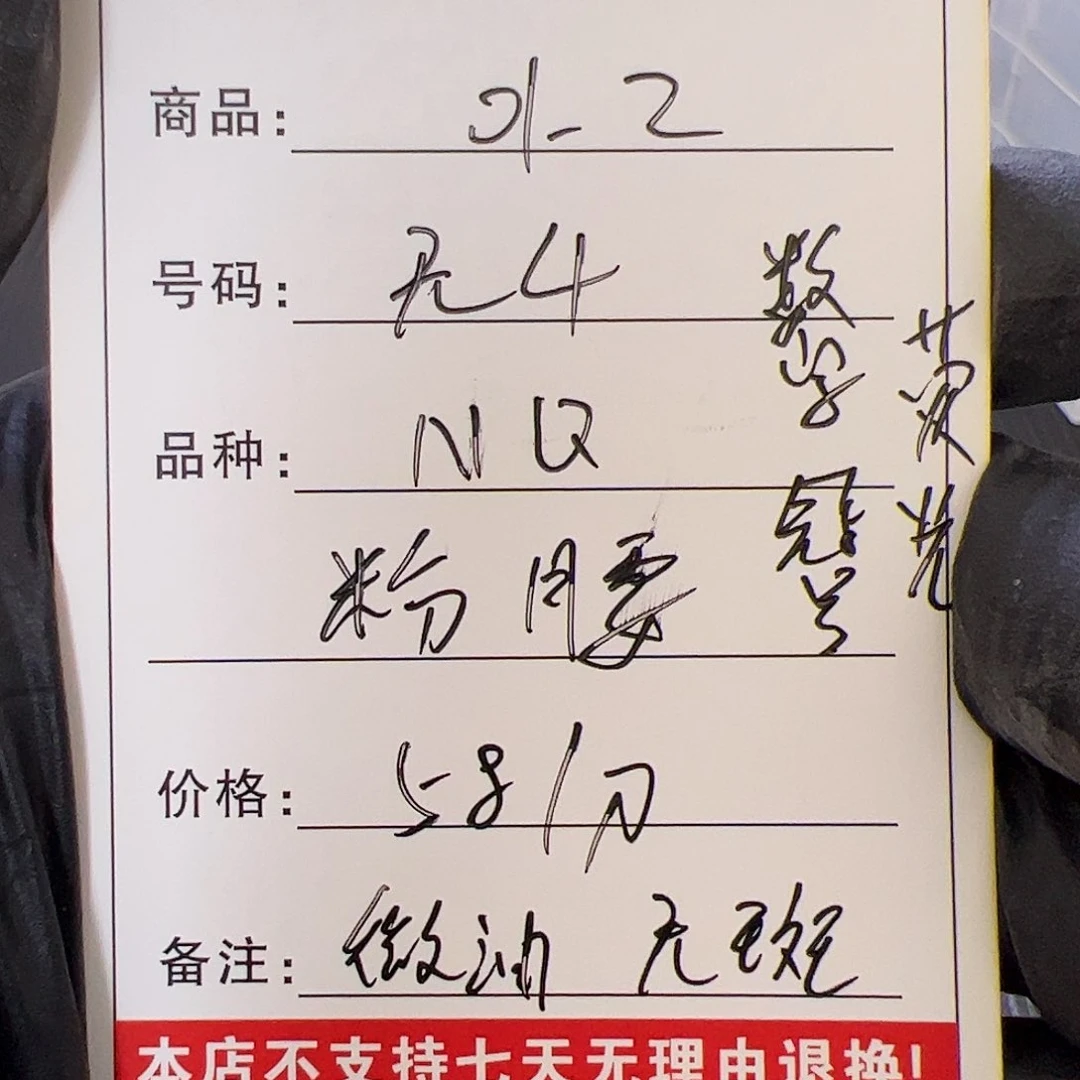 商品: 01-2
号码: 无4
品种: NQ
粉腰
价格: 58/份
备注: 微油 无斑
数字冠号
荧光
本店不支持七天无理由退换!